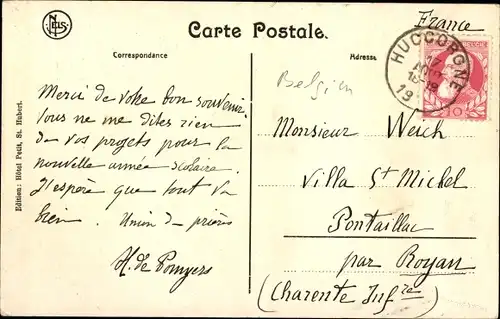 NELS
Carte Postale.
France
Correspondance
Adresse
HUCCORGNE
17
19
BELGIQUE
10
Belgien
Merci de votre bon souvenir.
Vous ne me dites rien
de vos projets pour la
nouvelle année scolaire.
J'espère que tout va
bien. Union de prières
H. de Pomyers
Monsieur Weich
Villa St Michel
Pontaillac
par Royan
(Charente Infre)
Edition: Hôtel Petit, St. Hubert.